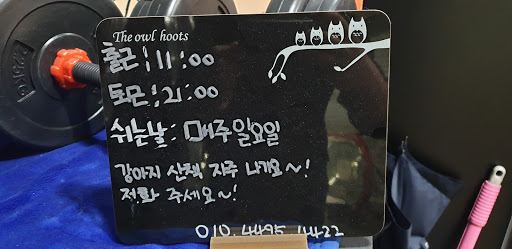 The owl hoots
출근 : 11 : 00
퇴근 : 21 : 00
쉬는날 : 매주 일요일
강아지 산책 자주 나가요~!
전화 주세요~!
010 4495 4422
2.25KG